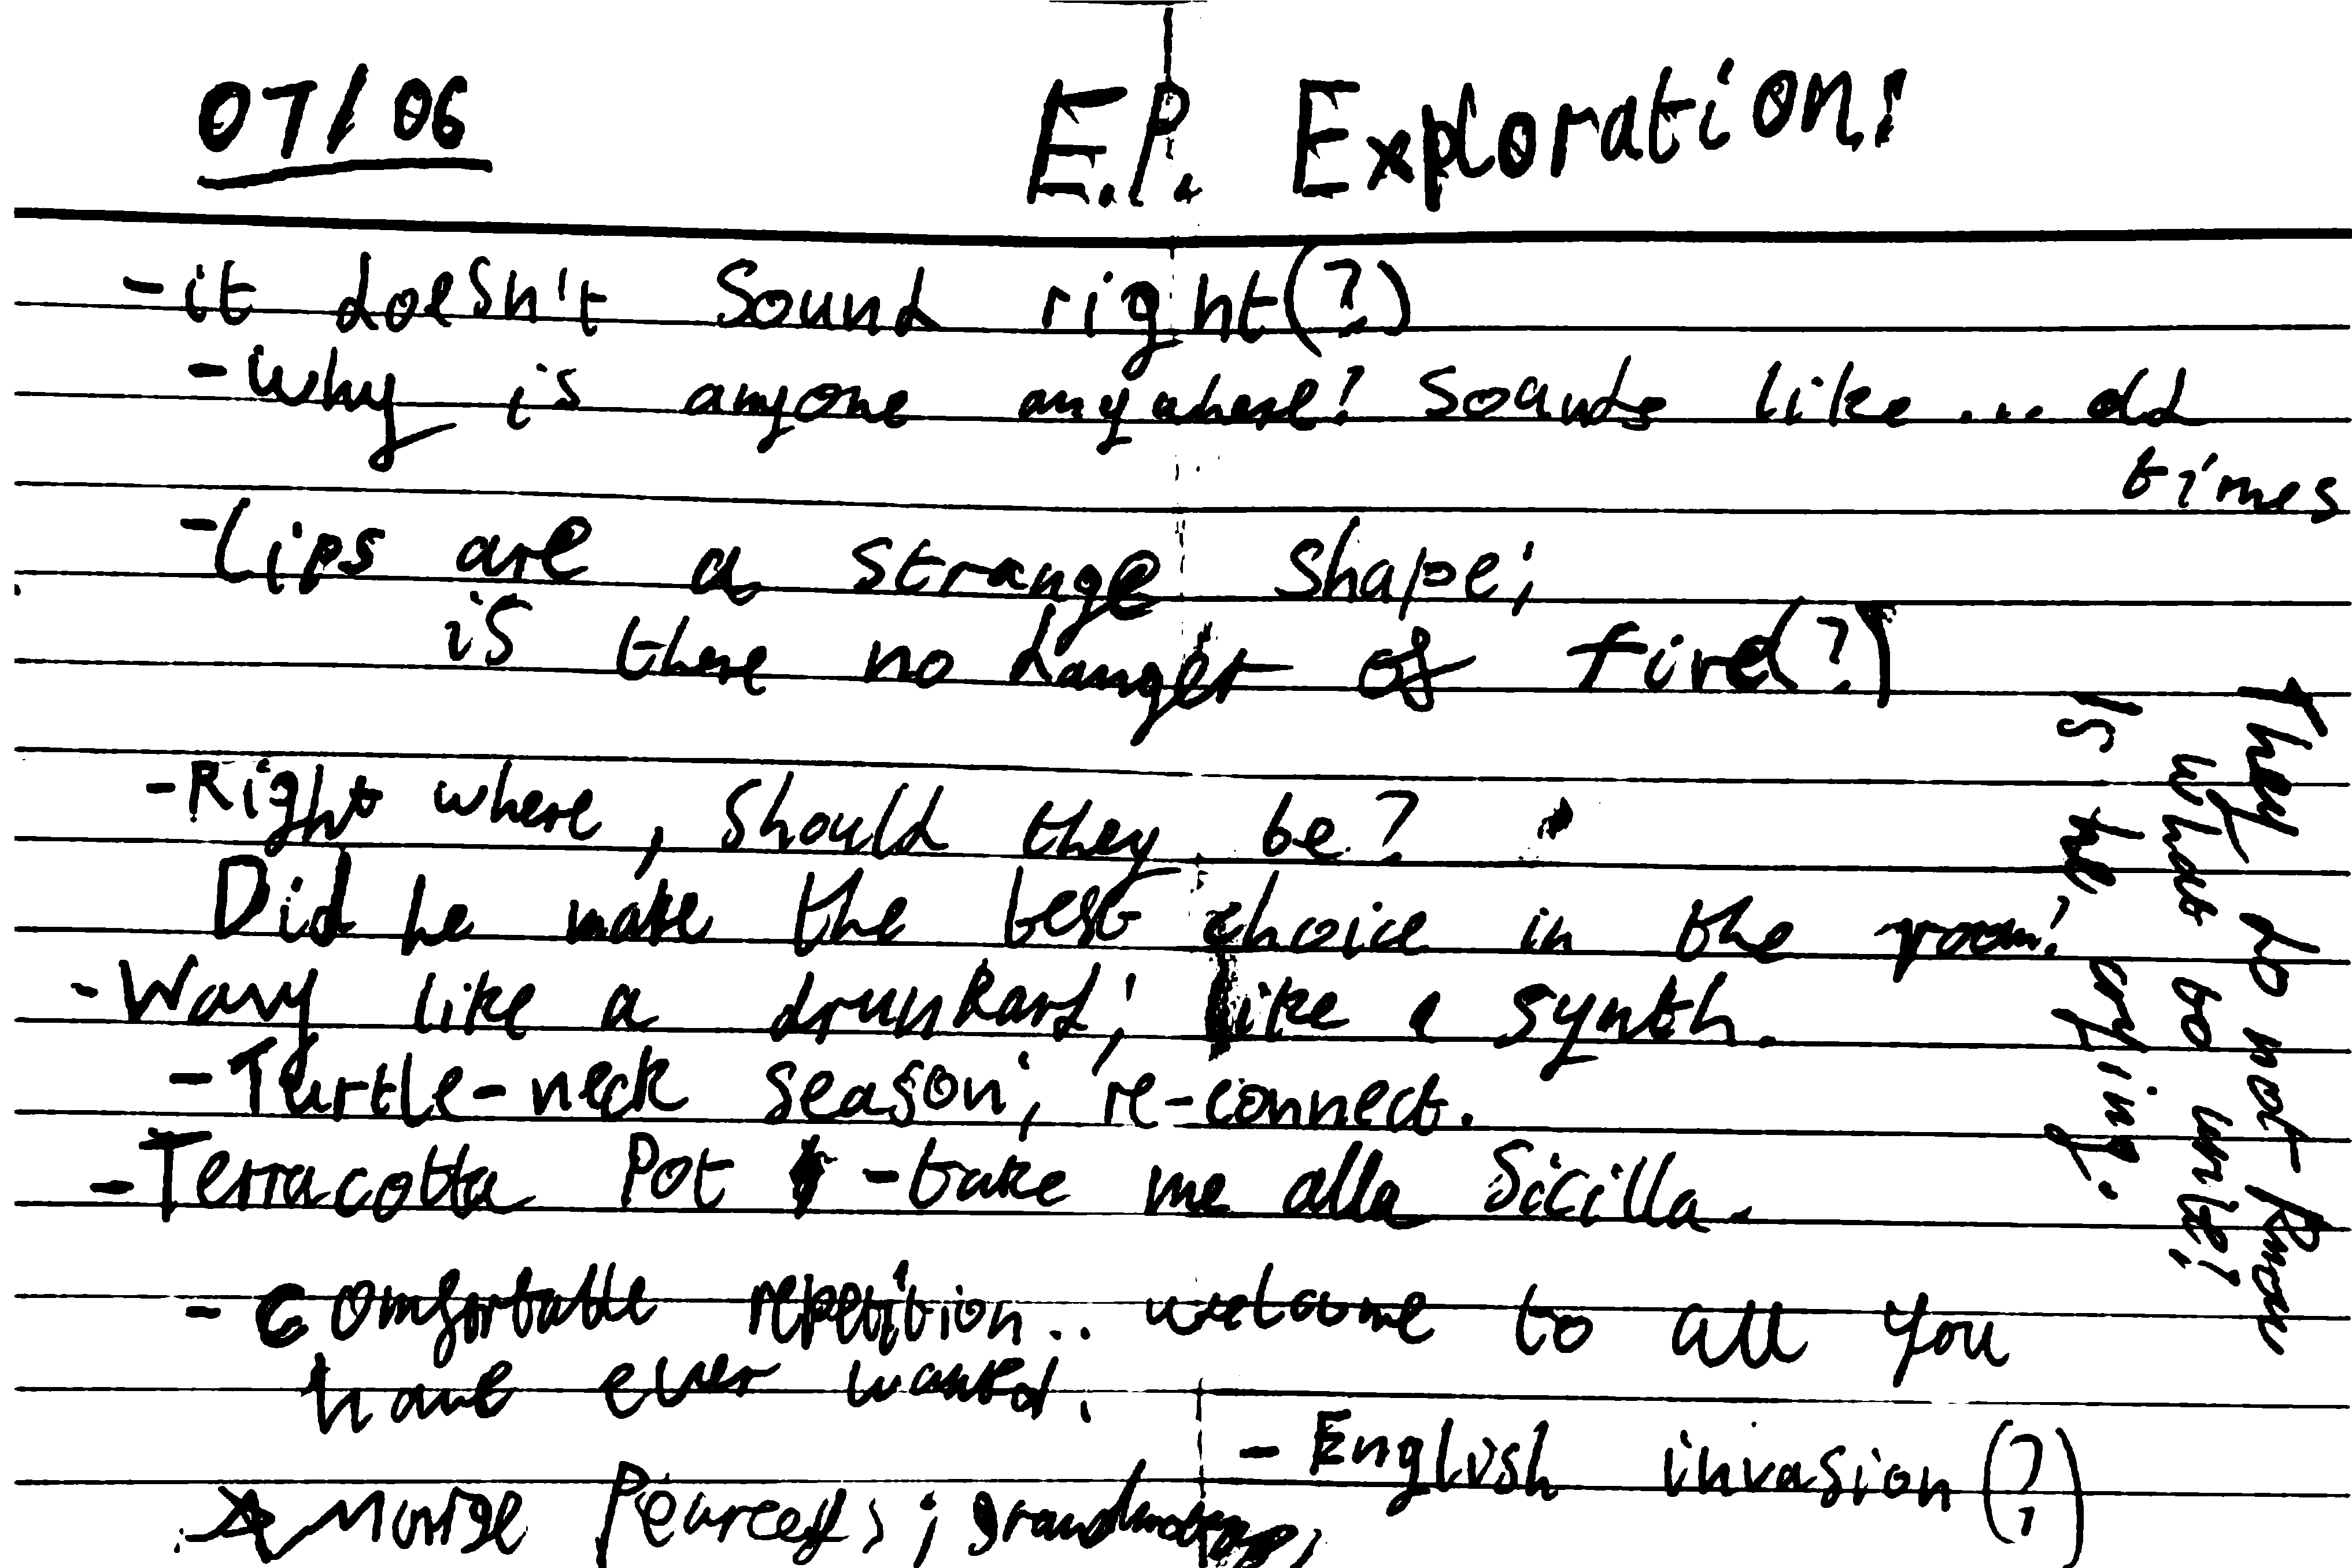 07/06 E.P. Exploration:
-it doesn't sound right(?)
-why is anyone anywhere? Sounds like ... old
times
-Lips are a strange shape;
is there no danger of fire(?)
-Right where, should they be?
Did he make the best choice in the room?
-Wavy like a drunkard; like a synth.
-Turtle-neck season; re-connect.
-Terracotta Pot -take me alla Sicilla.
-Comfortable repetition.. welcome to all you
have ever wanted.
-English invasion(?)
Pearce
They do not know
what to write?
Is the